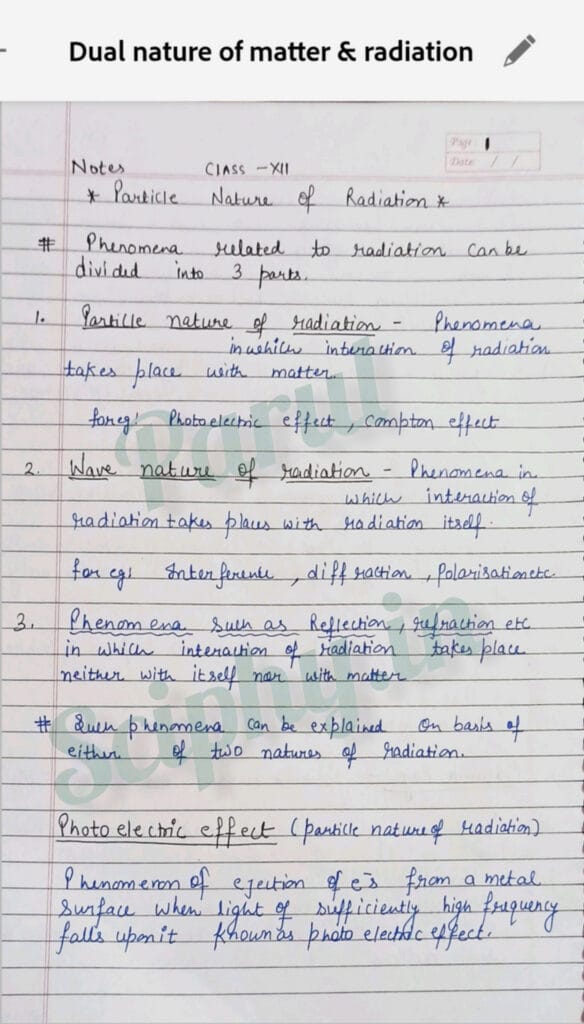 Dual nature of matter & radiation
Page 1
Date / /
Notes CLASS -XII
* Particle Nature of Radiation *
# Phenomena related to radiation can be
divided into 3 parts.
1. Particle nature of radiation - Phenomena
in which interaction of radiation
takes place with matter.
for eg: Photoelectric effect, Compton effect
2. Wave nature of radiation - Phenomena in
which interaction of
radiation takes places with radiation itself.
for eg: Interference, diffraction, Polarisation etc.
3. Phenomena such as Reflection, refraction etc
in which interaction of radiation takes place
neither with itself nor with matter
# Such phenomena can be explained on basis of
either of two natures of radiation.
Photo electric effect (particle nature of radiation)
Phenomenon of ejection of e⁻s from a metal
surface when light of sufficiently high frequency
falls upon it known as photo electric effect.
Parul
Sciphy.in